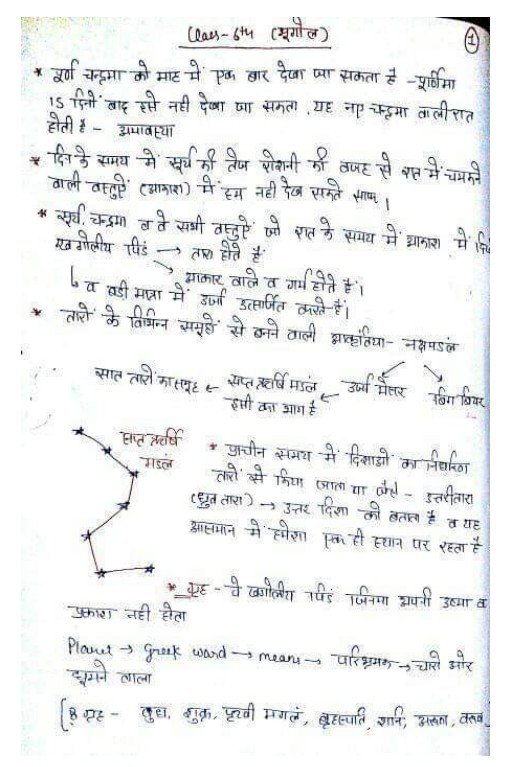 Class-6th (भूगोल)
①
* पूर्ण चन्द्रमा को माह में एक बार देखा जा सकता है - पूर्णिमा
15 दिनों बाद इसे नही देखा जा सकता, यह नए चन्द्रमा वाली रात
होती है - अमावस्या
* दिन के समय में सूर्य की तेज रोशनी की वजह से रात में चमकने
वाली वस्तुएं (आकाश) में हम नही देख सकते साफ।
* सूर्य, चन्द्रमा व वे सभी वस्तुएं जो रात के समय में आकाश में
खगोलीय पिंड → तारा होते हैं
→ आकार वाले व गर्म होते हैं।
↳ व बडी मात्रा में उर्जा उत्सर्जित करते हैं।
* तारों के विभिन्न समूहो से बनने वाली आकृतिया - नक्षत्रमडंल
सात तारों का समूह ← सप्त ऋषि मडंल ← उर्सा मेजर
बिग बियर
इसी का भाग है
सप्त ऋषि
मडंल
* प्राचीन समय में दिशाओ का निर्धारण
तारों से किया जाता था जैसे - उत्तरीतारा
(ध्रुव तारा) → उत्तर दिशा को बताता है व यह
आसमान में हमेशा एक ही स्थान पर रहता है
* ग्रह - वे खगोलीय पिडं जिनमा अपनी उष्मा व
प्रकाश नही होता
Planet → Greek word → means → परिभ्रमक → चारो ओर
घूमने वाला
[8 ग्रह - बुध, शुक्र, पृथ्वी मगंल, बृहस्पति, शनि, अरुण, वरुण